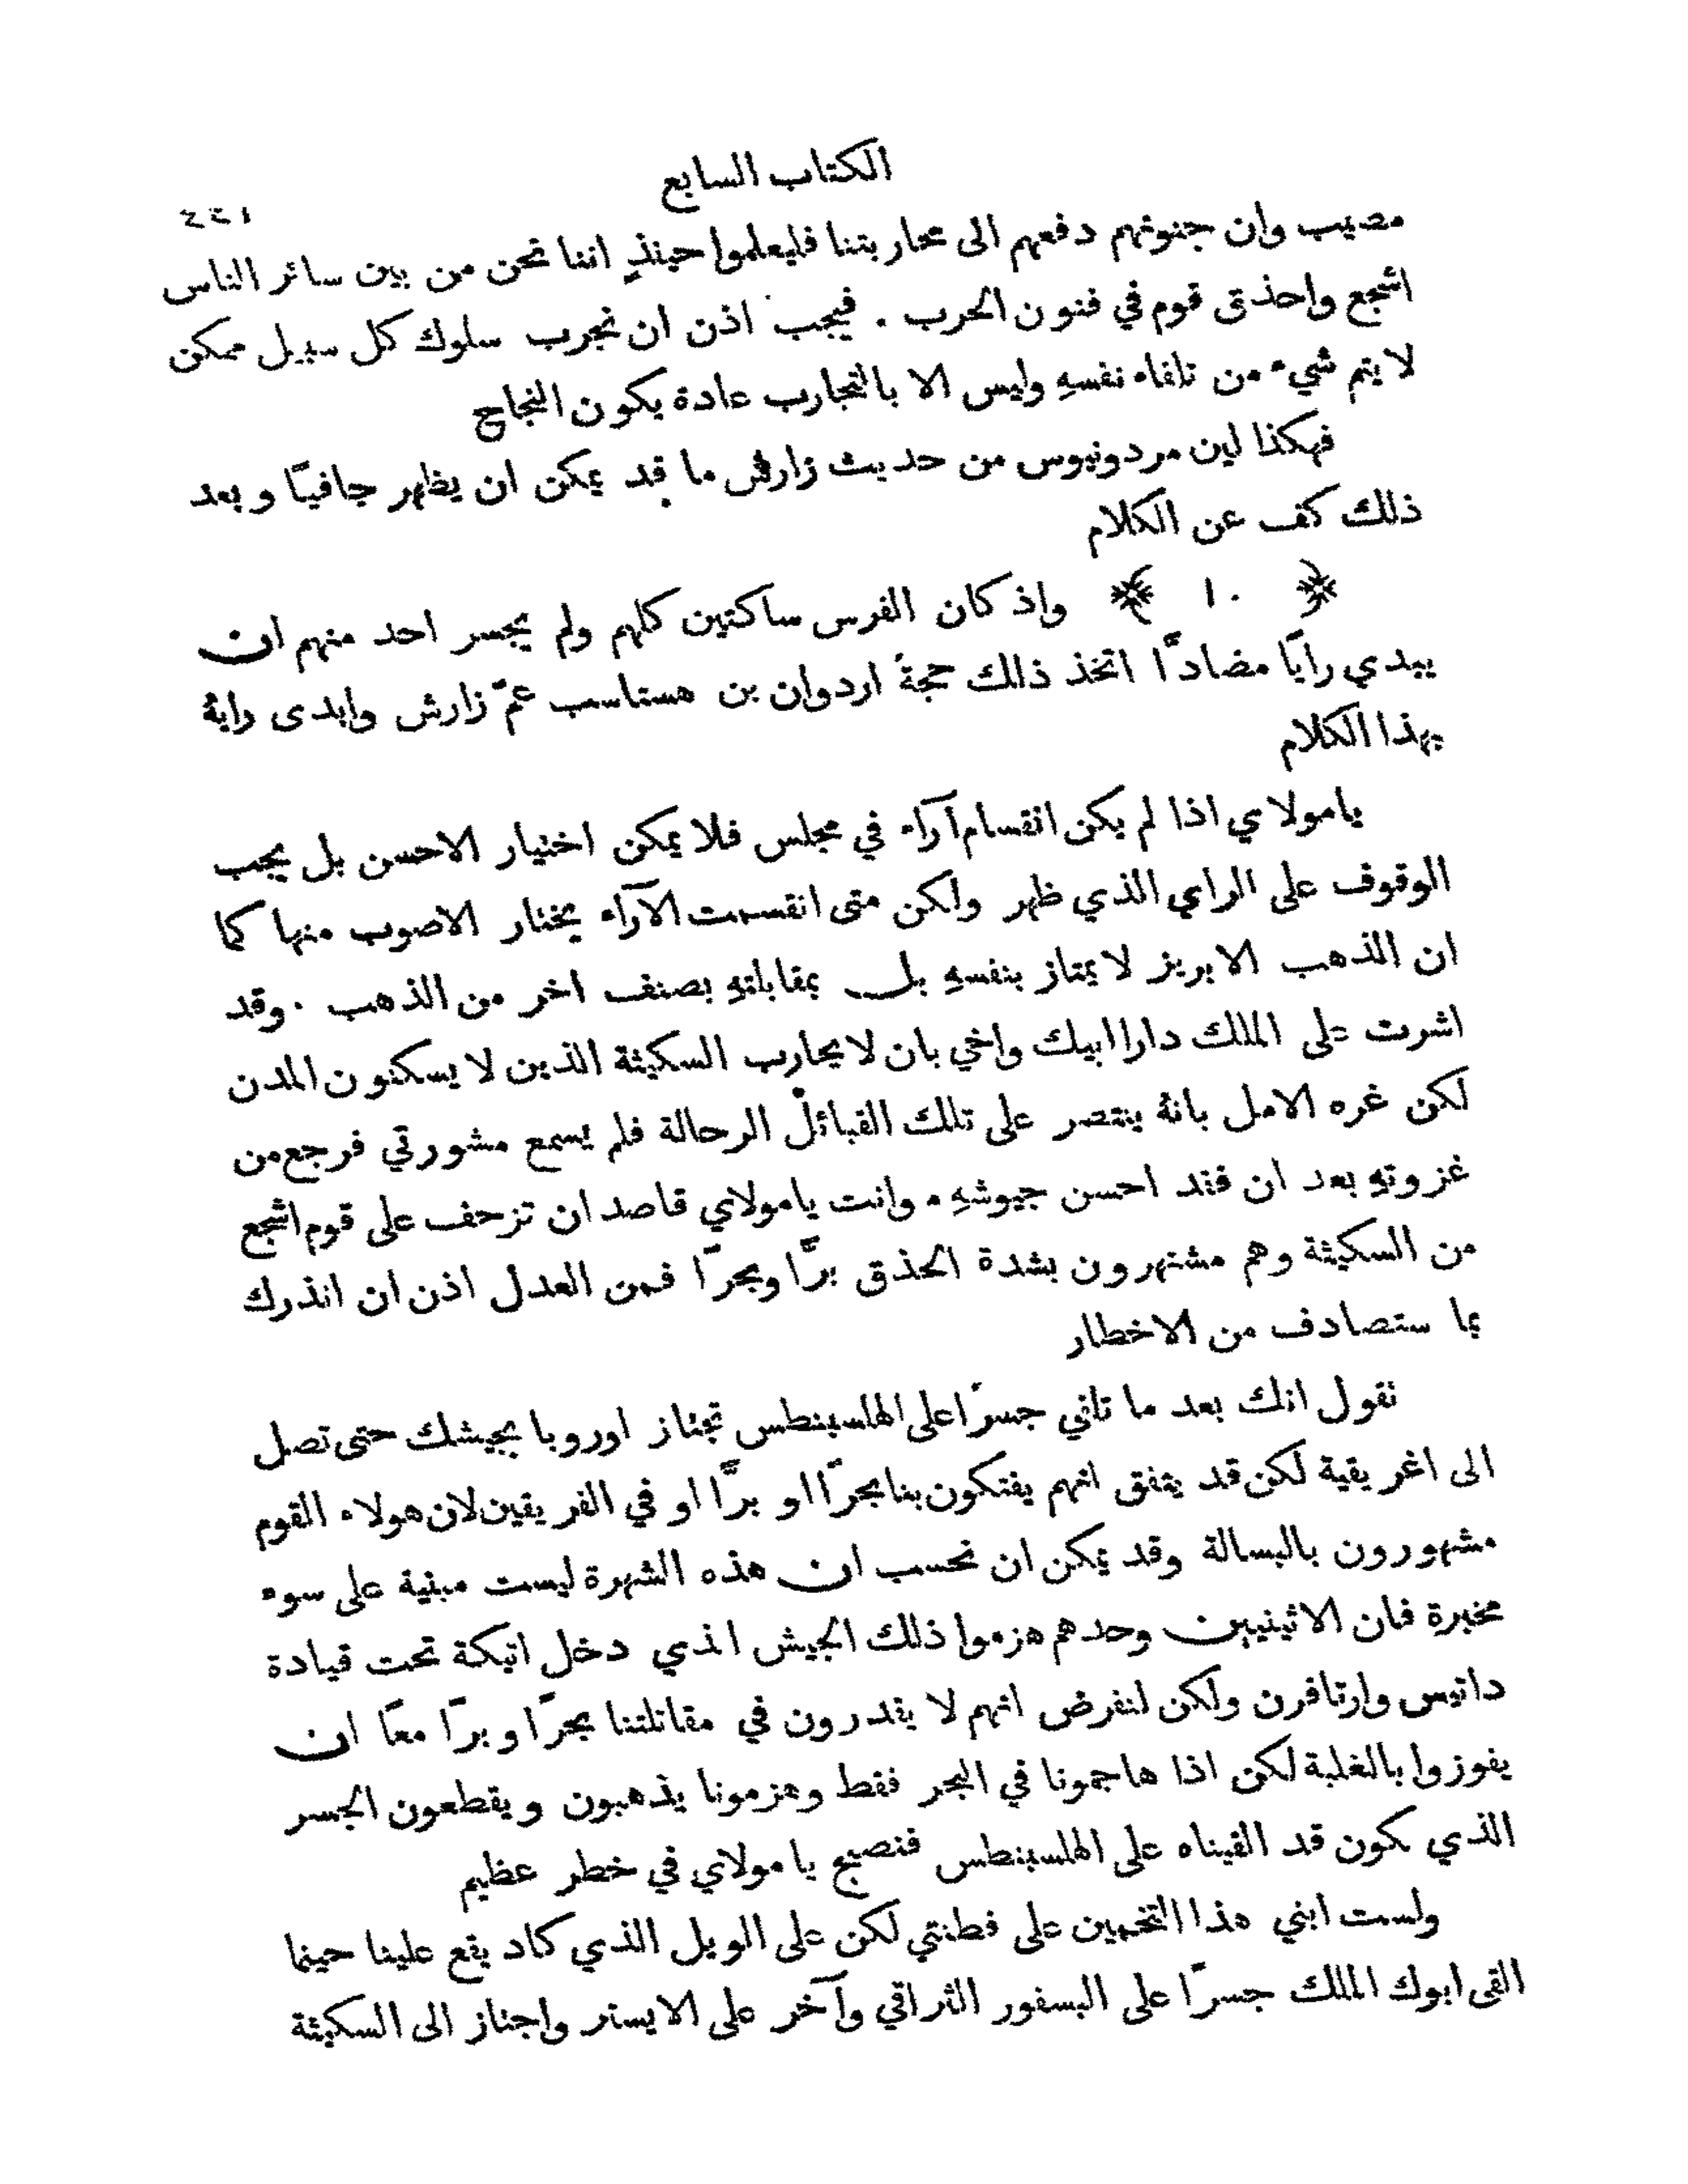 الكتاب السابع
٤٤١
مصيب وان جنونهم دفعهم الى محاربتنا فليعلموا حينئذٍ اننا نحن من بين سائر الناس
اشجع واحذق قوم في فنون الحرب . فيجب اذن ان نجرب سلوك كل سبيل ممكن
لا يتم شيء من تلقاء نفسهِ وليس الا بالتجارب عادة يكون النجاح
فهكذا لين مردونيوس من حديث زارش ما قد يمكن ان يظهر جافيًا وبعد
ذلك كف عن الكلام
﴿ ١٠ ﴾ واذ كان الفرس ساكتين كلهم ولم يجسر احد منهم ان
يبدي رايًا مضادًّا اتخذ ذلك حجةً اردوان بن هستاسب عمّ زارش وابدى رايهُ
بهذا الكلام
يامولاي اذا لم يكن انقسام آراء في مجلس فلا يمكن اختيار الاحسن بل يجب
الوقوف على الراي الذي ظهر ولكن متى انقسمت الآراء يختار الاصوب منها كما
ان الذهب الابريز لا يمتاز بنفسهِ بل بمقابلتهِ بصنف اخر من الذهب . وقد
اشرت على الملك دارا ابيك واخي بان لا يحارب السكيثة الذين لا يسكنون المدن
لكن غره الامل بانهُ ينتصر على تلك القبائل الرحالة فلم يسمع مشورتي فرجع من
غزوتهِ بعد ان فقد احسن جيوشهِ . وانت يامولاي قاصد ان تزحف على قوم اشجع
من السكيثة وهم مشتهرون بشدة الحذق برًّا وبحرًا فمن العدل اذن ان انذرك
بما ستصادف من الاخطار
نقول انك بعد ما تلقي جسرًا على الهلسبنطس تجتاز اوروبا بجيشك حتى تصل
الى اغريقية لكن قد يتفق انهم يفتكون بنا بحرًا او برًّا او في الفريقين لان هولاء القوم
مشهورون بالبسالة وقد يمكن ان نحسب ان هذه الشهرة ليست مبنية على سوء
مخبرة فان الاثينيين وحدهم هزموا ذلك الجيش الذي دخل اتيكة تحت قيادة
داتيس وارتافرن ولكن لنفرض انهم لا يقدرون في مقاتلتنا بحرًا وبرًا معًا ان
يفوزوا بالغلبة لكن اذا هاجمونا في البحر فقط وهزمونا يذهبون ويقطعون الجسر
الذي نكون قد القيناه على الهلسبنطس فنصبح يا مولاي في خطر عظيم
ولست ابني هذا التخمين على فطنتي لكن على الويل الذي كاد يقع علينا حينما
القى ابوك الملك جسرًا على البسفور الثراقي وآخر على الايستر واجتاز الى السكيثة